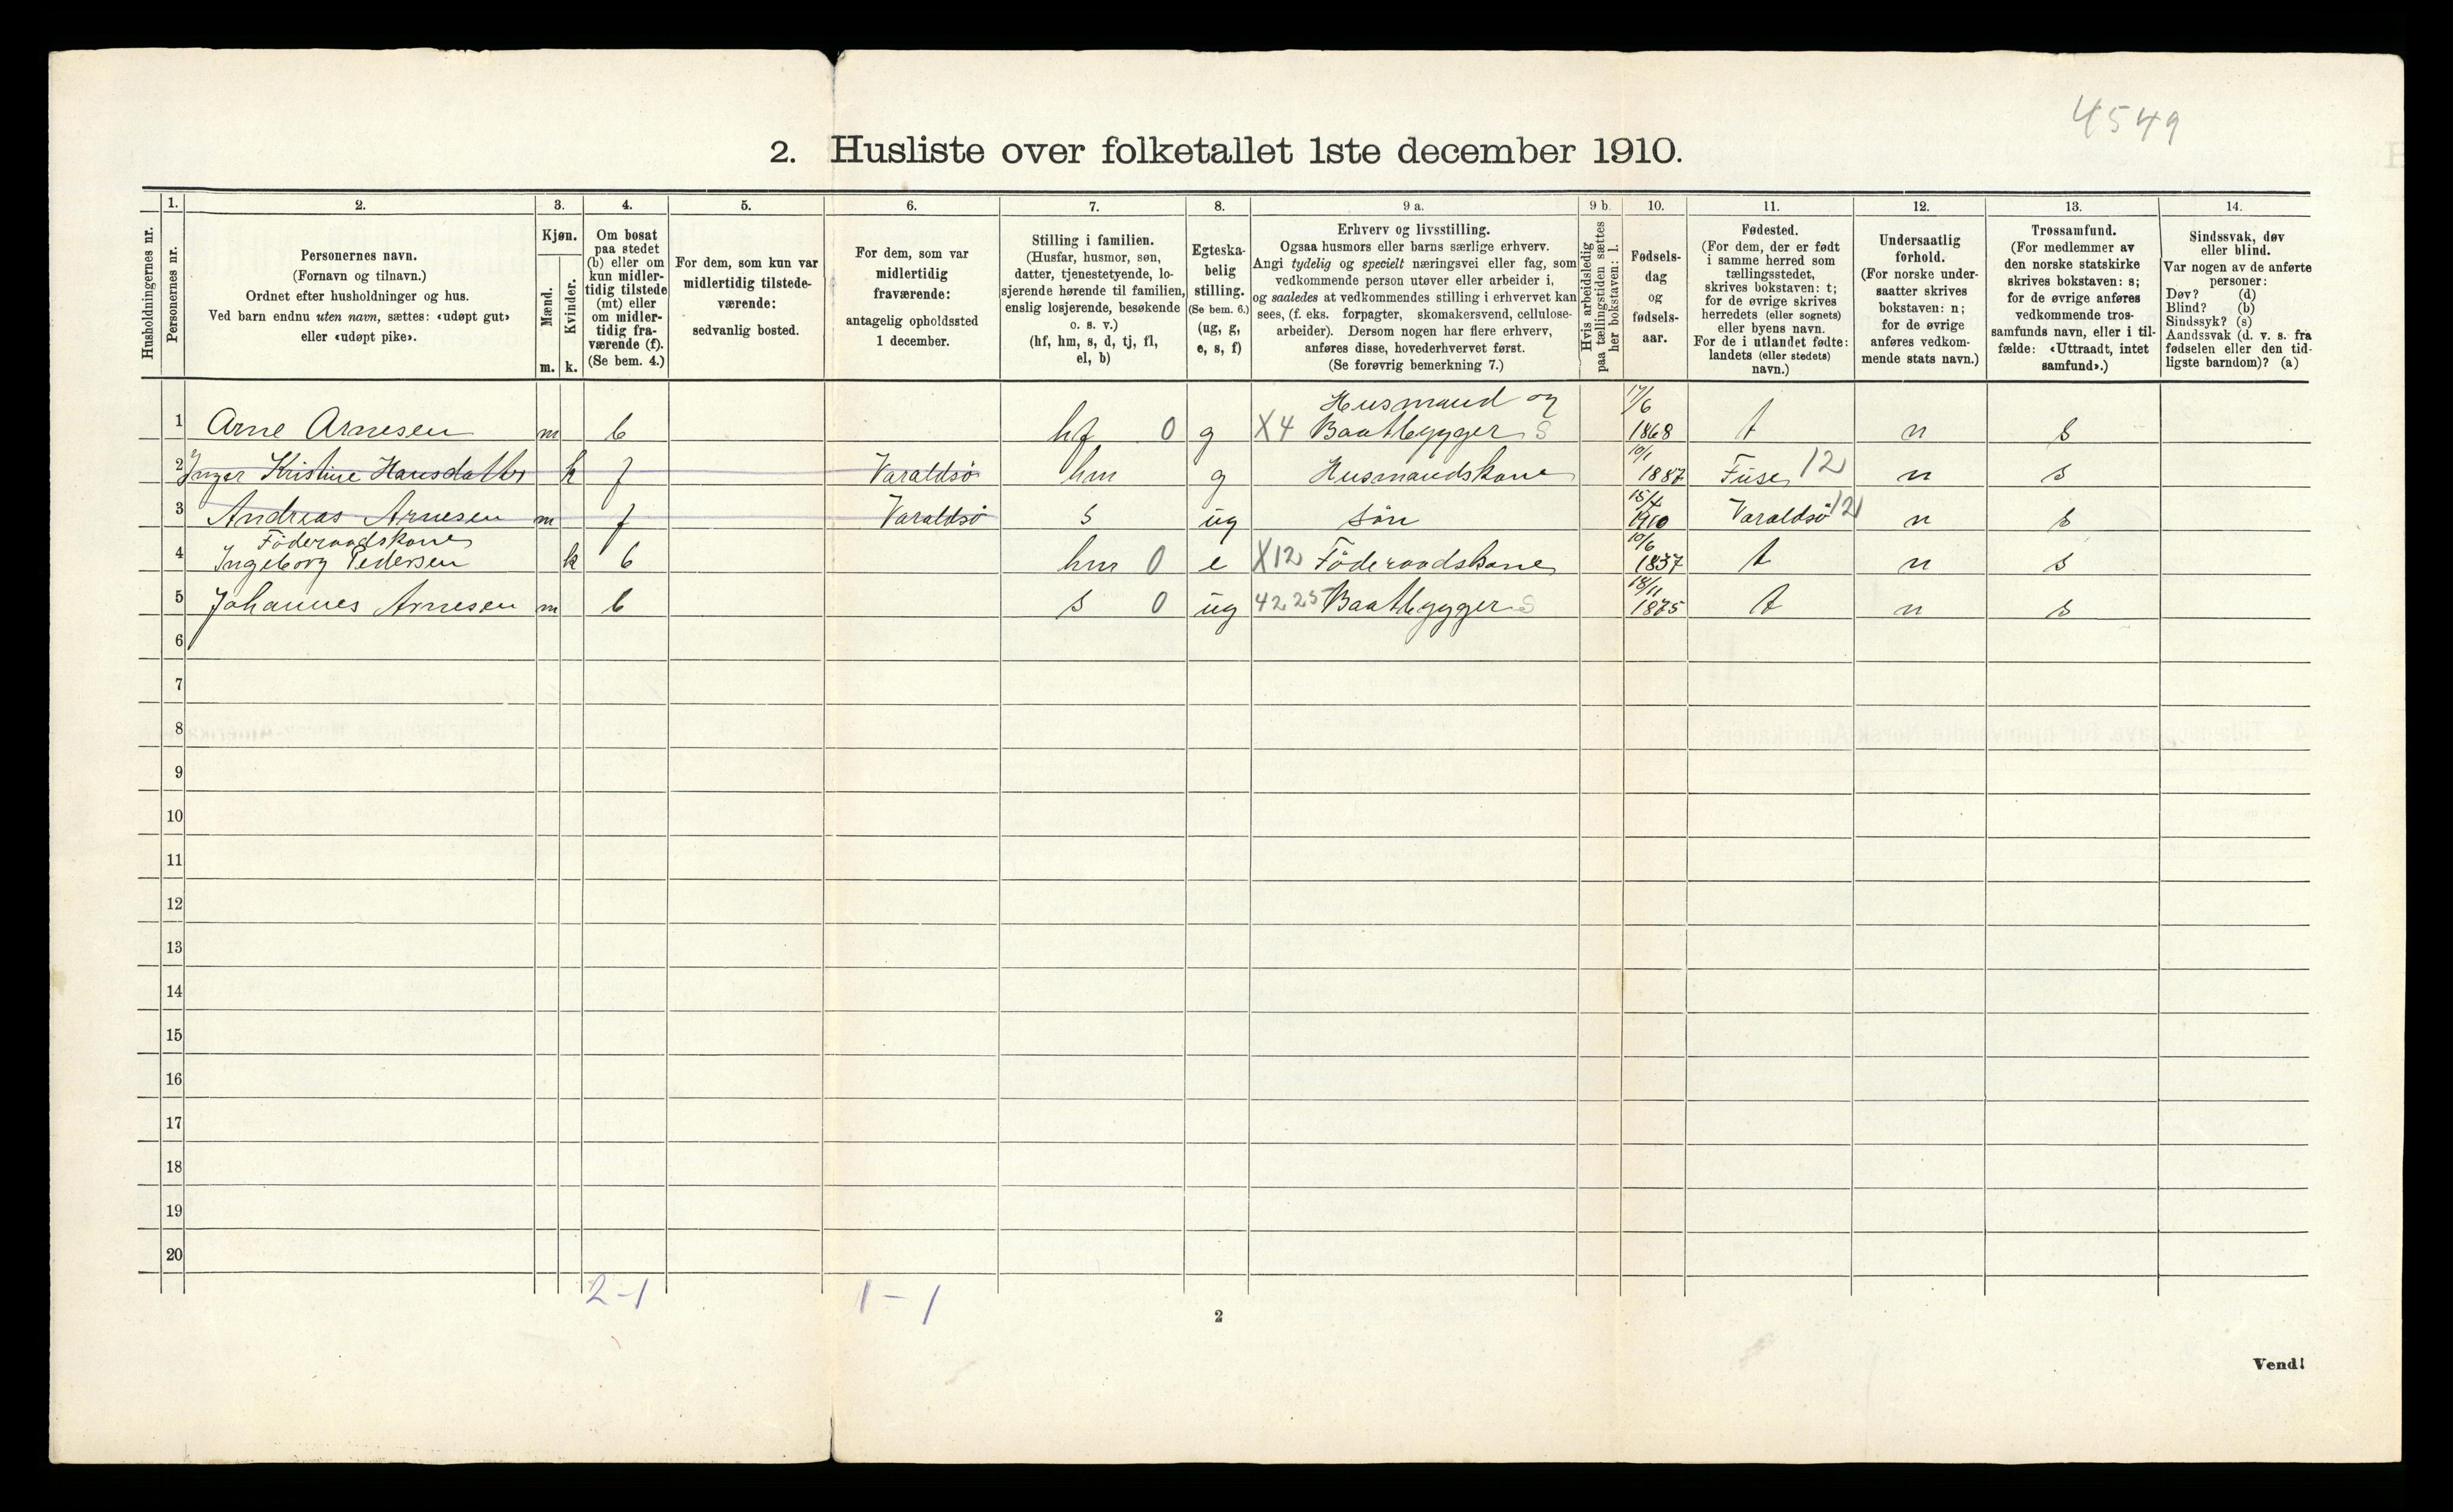 4549
2. Husliste over folketallet 1ste december 1910.
Husholdningernes nr.
1.
Personernes nr.
2.
Personernes navn.
(Fornavn og tilnavn.)
Ordnet efter husholdninger og hus.
Ved barn endnu uten navn, sættes: «udøpt gut»
eller «udøpt pike».
3.
Kjøn.
Mænd.
Kvinder.
m. k.
4.
Om bosat
paa stedet
(b) eller om
kun midler-
tidig tilstede
(mt) eller
om midler-
tidig fra-
værende (f).
(Se bem. 4.)
5.
For dem, som kun var
midlertidig tilstede-
værende:
sedvanlig bosted.
6.
For dem, som var
midlertidig
fraværende:
antagelig opholdssted
1 december.
7.
Stilling i familien.
(Husfar, husmor, søn,
datter, tjenestetyende, lo-
sjerende hørende til familien,
enslig losjerende, besøkende
o. s. v.)
(hf, hm, s, d, tj, fl,
el, b)
8.
Egteska-
belig
stilling.
(Se bem. 6.)
(ug, g,
e, s, f)
9 a.
Erhverv og livsstilling.
Ogsaa husmors eller barns særlige erhverv.
Angi tydelig og specielt næringsvei eller fag, som
vedkommende person utøver eller arbeider i,
og saaledes at vedkommendes stilling i erhvervet kan
sees, (f. eks. forpagter, skomakersvend, cellulose-
arbeider). Dersom nogen har flere erhverv,
anføres disse, hovederhvervet først.
(Se forøvrig bemerkning 7.)
9 b.
Hvis arbeidsledig
paa tællingstiden sættes
her bokstaven: l.
10.
Fødsels-
dag
og
fødsels-
aar.
11.
Fødested.
(For dem, der er født
i samme herred som
tællingsstedet,
skrives bokstaven: t;
for de øvrige skrives
herredets (eller sognets)
eller byens navn.
For de i utlandet fødte:
landets (eller stedets)
navn.)
12.
Undersaatlig
forhold.
(For norske under-
saatter skrives
bokstaven: n;
for de øvrige
anføres vedkom-
mende stats navn.)
13.
Trossamfund.
(For medlemmer av
den norske statskirke
skrives bokstaven: s;
for de øvrige anføres
vedkommende tros-
samfunds navn, eller i til-
fælde: «Uttraadt, intet
samfund».)
14.
Sindssvak, døv
eller blind.
Var nogen av de anførte
personer:
Døv? (d)
Blind? (b)
Sindssyk? (s)
Aandssvak (d. v. s. fra
fødselen eller den tid-
ligste barndom)? (a)
Husmand og 17/6
1 Arne Arnesen m b hf 0 g X4 Baatbygger S 1868 t n s
10/1
2 Inger Kristine Hansdatter k f Varaldsö hm g Husmandskone 1887 Fuse 12 n s
15/4
3 Andreas Arnesen m f Varaldsö s ug sön 1910 Varaldsö 12 n s
Föderaadskone 10/6
4 Ingeborg Pedersen k b hm 0 e X12 Föderaadskone 1837 t n s
18/11
5 Johannes Arnesen m b s 0 ug 42.25 Baatbygger S 1875 t n s
6
7
8
9
10
11
12
13
14
15
16
17
18
19
20
2-1 1-1
2
Vend!